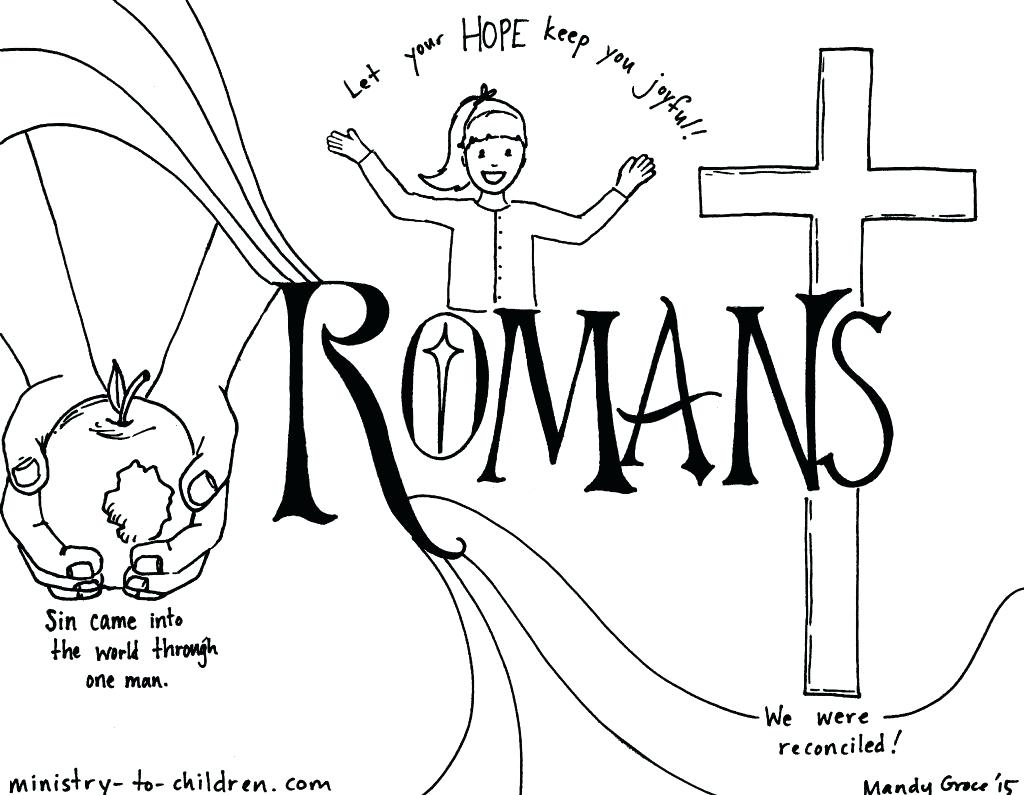 Let your HOPE keep you joyful!!
ROMANS
Sin came into
the world through
one man.
We were
reconciled!
ministry-to-children.com
Mandy Groce '15